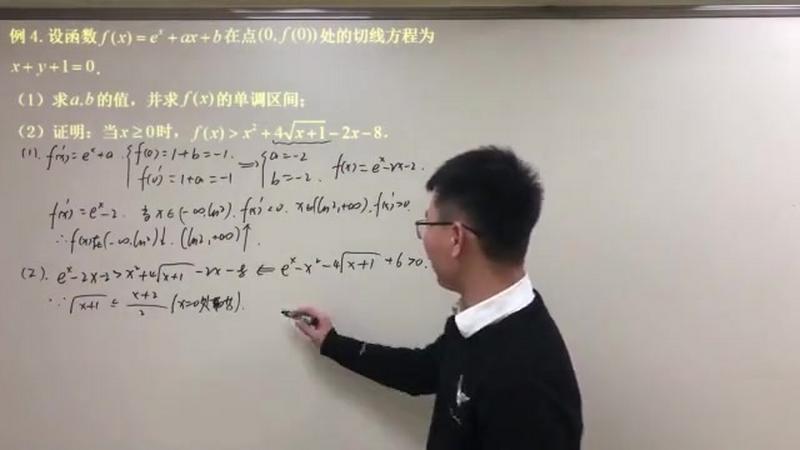 例 4. 设函数 f(x) = e^x + ax + b 在点 (0, f(0)) 处的切线方程为
x + y + 1 = 0.
（1）求 a,b 的值，并求 f(x) 的单调区间；
（2）证明：当 x ≥ 0 时， f(x) > x² + 4√(x+1) − 2x − 8.
(1). f'(x) = e^x + a. { f(0) = 1 + b = −1. f'(0) = 1 + a = −1 ⟹ { a = −2 b = −2. f(x) = e^x − 2x − 2.
f'(x) = e^x − 2. 当 x∈(−∞, ln2). f'(x) < 0. x∈(ln2, +∞). f'(x) > 0.
∴ f(x)在(−∞, ln2)↓. (ln2, +∞)↑.
(2). e^x − 2x − 2 > x² + 4√(x+1) − 2x − 8 ⇐ e^x − x² − 4√(x+1) + 6 > 0.
∵ √(x+1) ≤ (x+2)/2 (x=0处